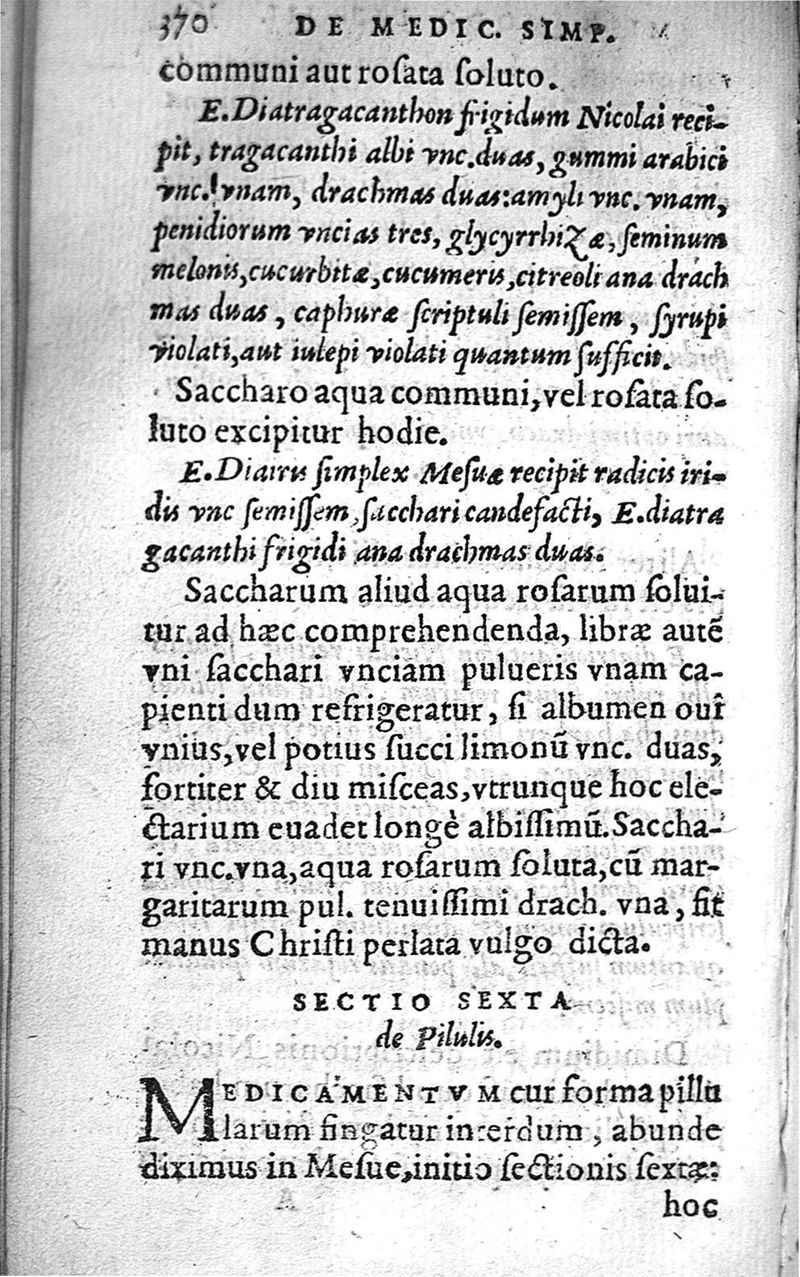 370 DE MEDIC. SIMP.
communi aut rosata soluto.
E. Diatragacanthon frigidum Nicolai reci-
pit, tragacanthi albi vnc. duas, gummi arabici
vnc. vnam, drachmas duas: amyli vnc. vnam,
penidiorum vncias tres, glycyrrhizæ, seminum
melonis, cucurbitæ, cucumeris, citreoli ana drach
mas duas, caphuræ scriptuli semissem, syrupi
violati, aut iulepi violati quantum sufficit.
Saccharo aqua communi, vel rosata so-
luto excipitur hodie.
E. Diairis simplex Mesuæ recipit radicis iri-
dis vnc semissem, sacchari candefacti, E. diatra
gacanthi frigidi ana drachmas duas.
Saccharum aliud aqua rosarum solui-
tur ad hæc comprehendenda, libræ autẽ
vni sacchari vnciam pulueris vnam ca-
pienti dum refrigeratur, si albumen oui
vnius, vel potius succi limonũ vnc. duas,
fortiter & diu misceas, vtrunque hoc ele-
ctarium euadet longè albissimũ. Saccha-
ri vnc. vna, aqua rosarum soluta, cũ mar-
garitarum pul. tenuissimi drach. vna, fit
manus Christi perlata vulgo dicta.
SECTIO SEXTA
de Pilulis.
MEDICAMENTVM cur forma pillu
larum fingatur interdum, abunde
diximus in Mesue, initio sectionis sextæ:
hoc